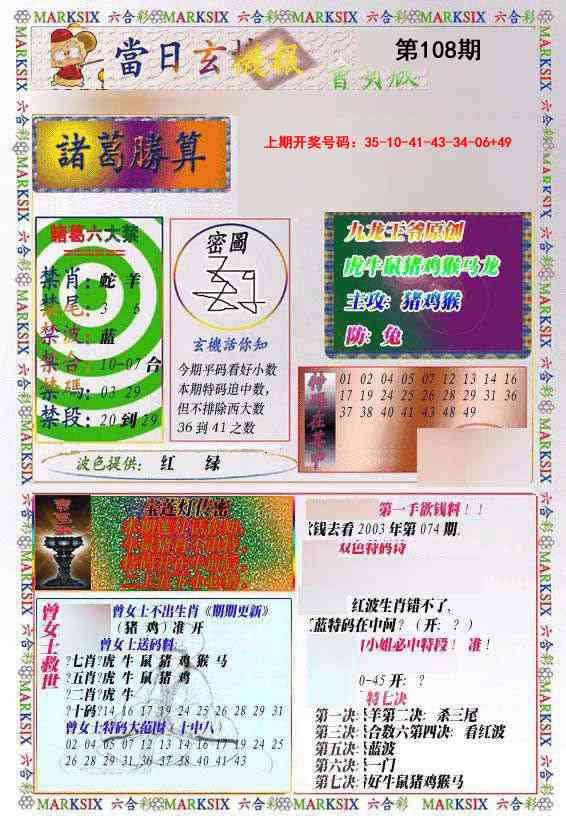 MARKSIX 六合彩 MARKSIX 六合彩 MARKSIX 六合彩 MARKSIX 六合彩
當日玄機報
第108期
諸葛勝算
上期开奖号码：35-10-41-43-34-06+49
諸葛六大禁
禁肖：蛇 羊
禁尾：3 6
禁波：蓝
禁合：10-07合
禁碼：03 29
禁段：20到29
密圖
玄機話你知
今期平码看好小数
本期特码追中数，
但不排除西大数
36到41之数
九龙王爷原创
虎牛鼠猪鸡猴马龙
主攻：猪鸡猴
防：兔
01 02 04 05 07 12 13 14 16
17 19 24 25 26 28 29 31 36
37 38 40 41 43 48 49
波色提供：红 绿
宝莲灯传密
第一手欲钱料！！
欠钱去看2003年第074期.
双色特码诗
红波生肖错不了，
蓝特码在中间？（开：？）
小姐必中特段！准！
0-45开：？
特七决
第一决：杀羊第二决：杀三尾
第三决：杀合数六第四决：看红波
第五决：杀蓝波
第六决：杀一门
第七决：看好牛鼠猪鸡猴马
曾女士救世
曾女士不出生肖《期期更新》
（猪 鸡）准开
曾女士送码料：
?七肖?虎 牛 鼠 猪 鸡 猴 马
?五肖?虎 牛 鼠 猪 鸡
?二肖?虎 牛
?十码?14 16 17 19 24 25 26 28 29 31
曾女士特码大范围：十中八）
02 04 05 07 12 13 14 16 17 19 24 25
26 28 29 31 36 37 38 40 41 43
MARKSIX 六合彩 MARKSIX 六合彩 MARKSIX 六合彩 MARKSIX 六合彩